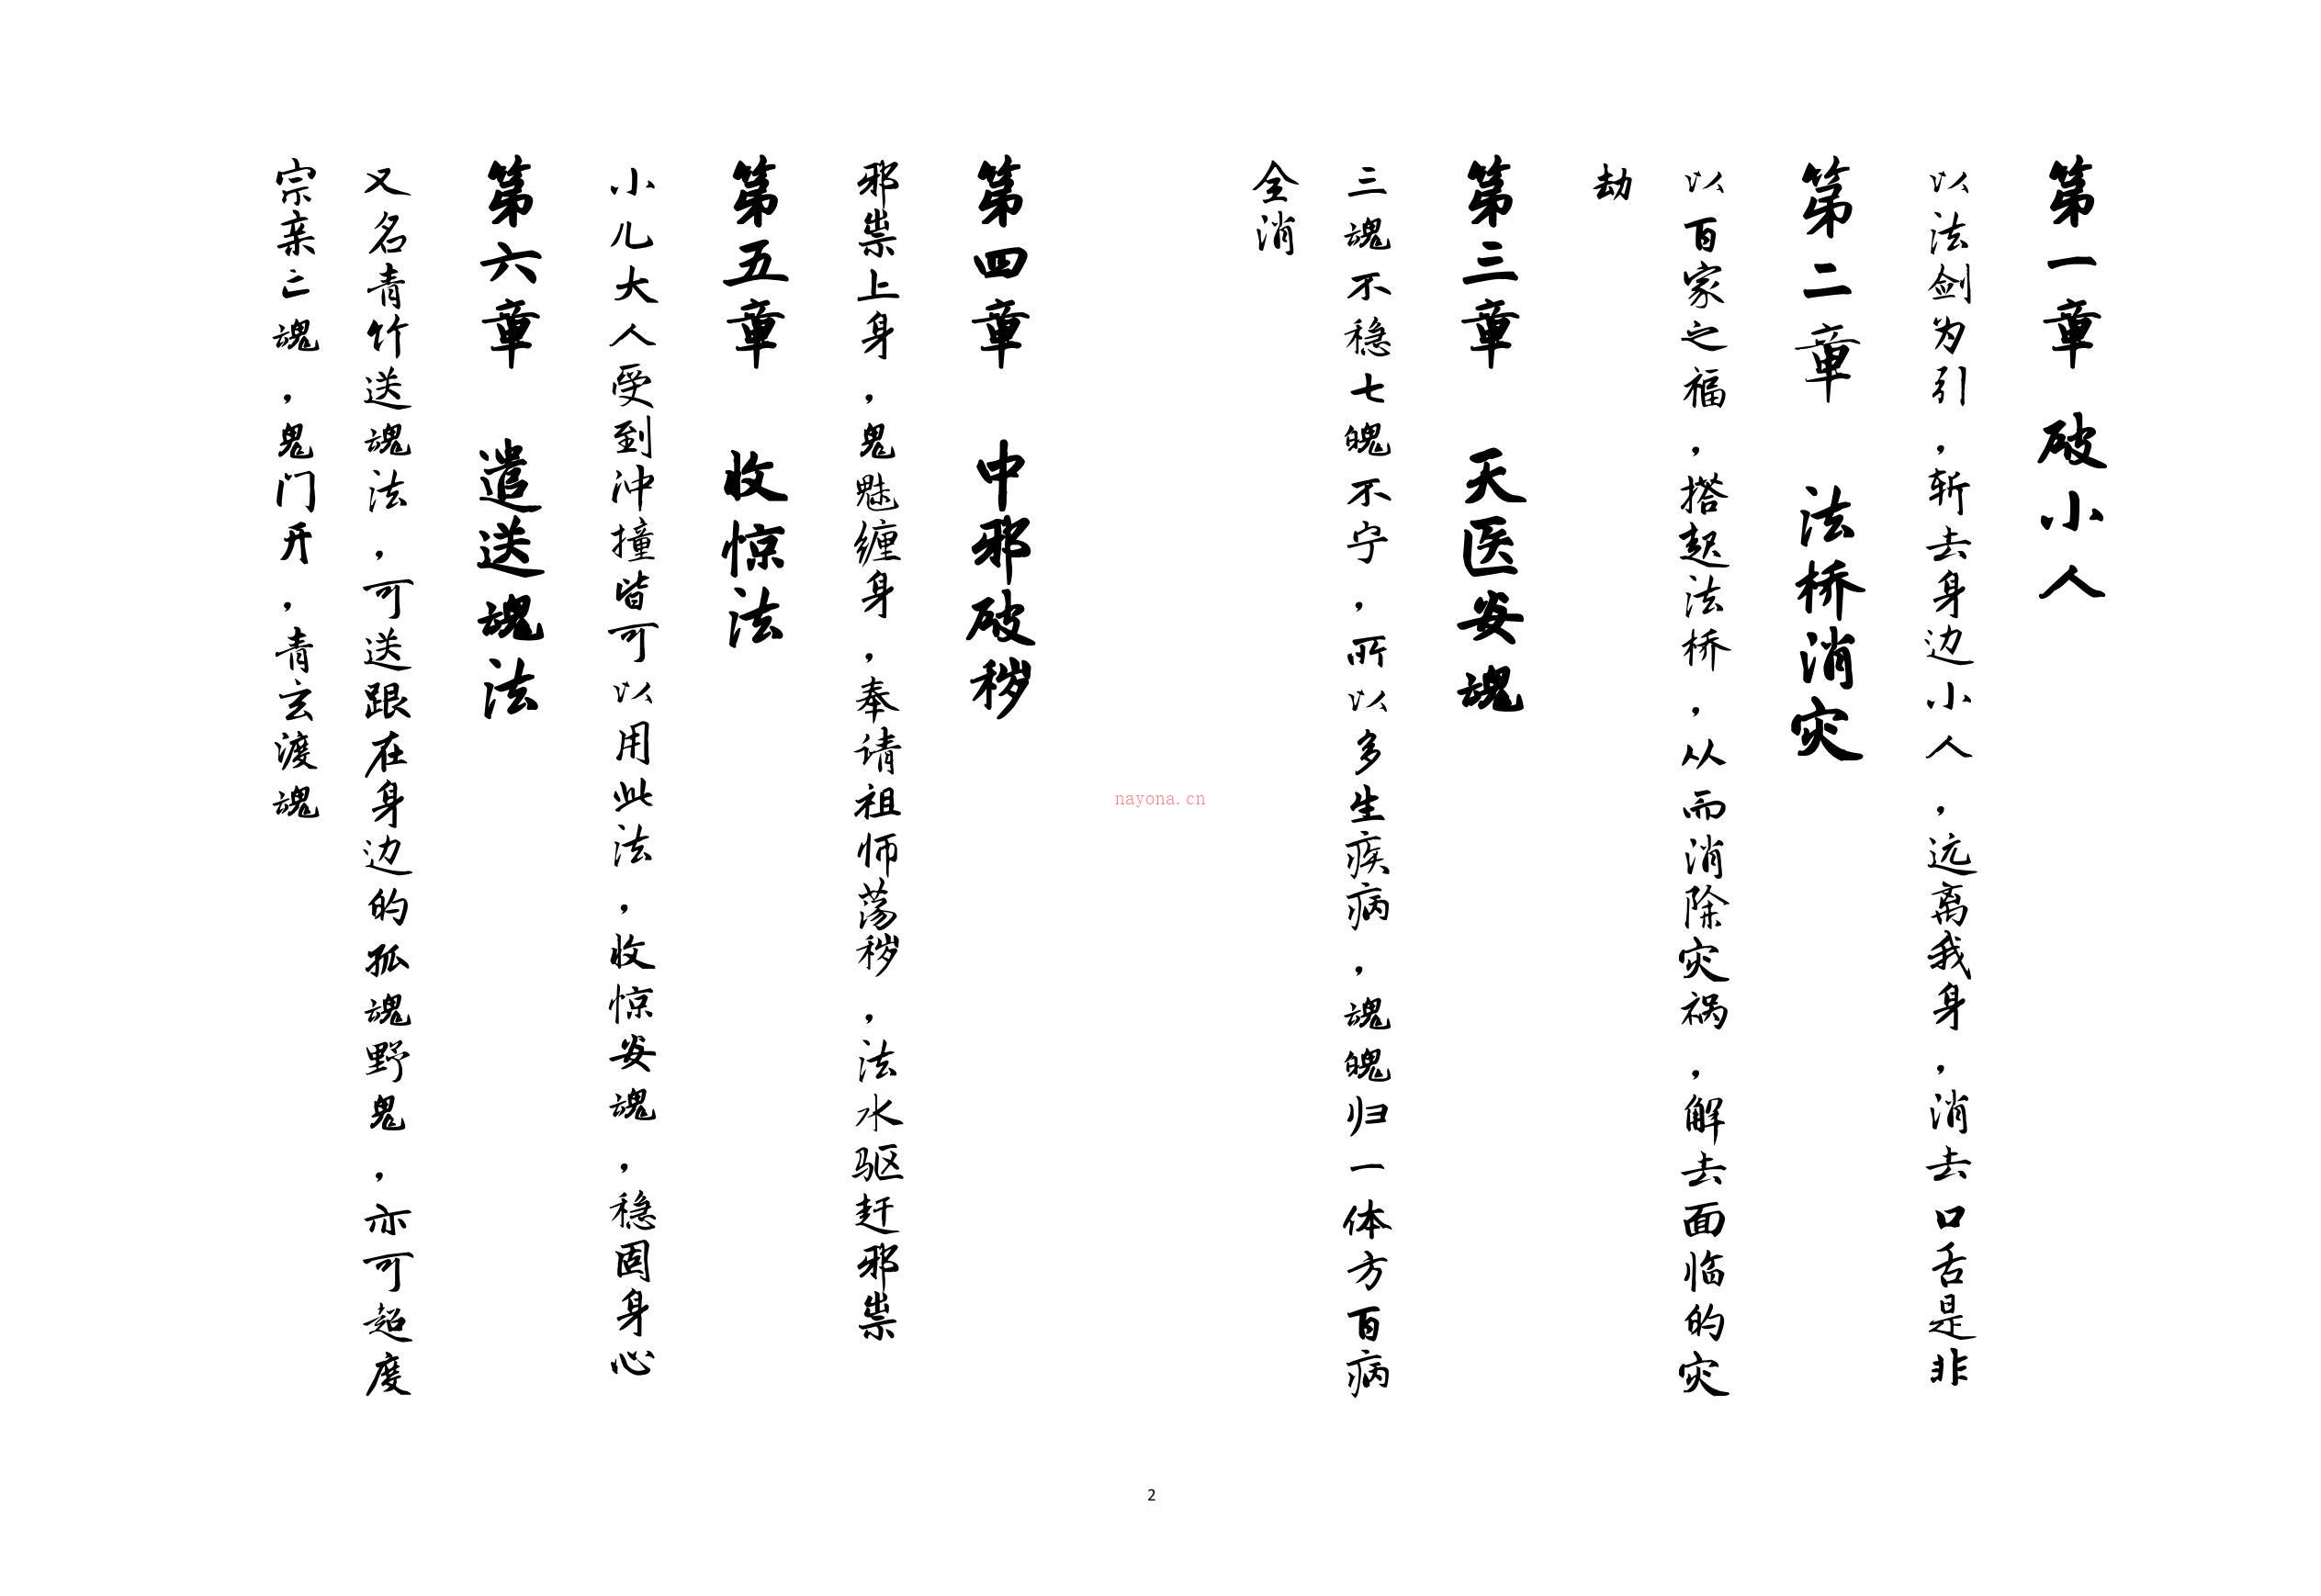 第一章 破小人
以法剑为引，斩去身边小人，远离我身，消去口舌是非
第二章 法桥消灾
以百家之福，搭起法桥，从而消除灾祸，解去面临的灾
劫
第三章 天医安魂
三魂不稳七魄不宁，所以多生疾病，魂魄归一体方百病
全消
第四章 中邪破秽
邪祟上身，鬼魅缠身，奉请祖师荡秽，法水驱赶邪祟
第五章 收惊法
小儿大人受到冲撞皆可以用此法，收惊安魂，稳固身心
第六章 遣送魂法
又名青竹送魂法，可送跟在身边的孤魂野鬼，亦可超度
宗亲亡魂，鬼门开，青玄渡魂
nayona.cn
2